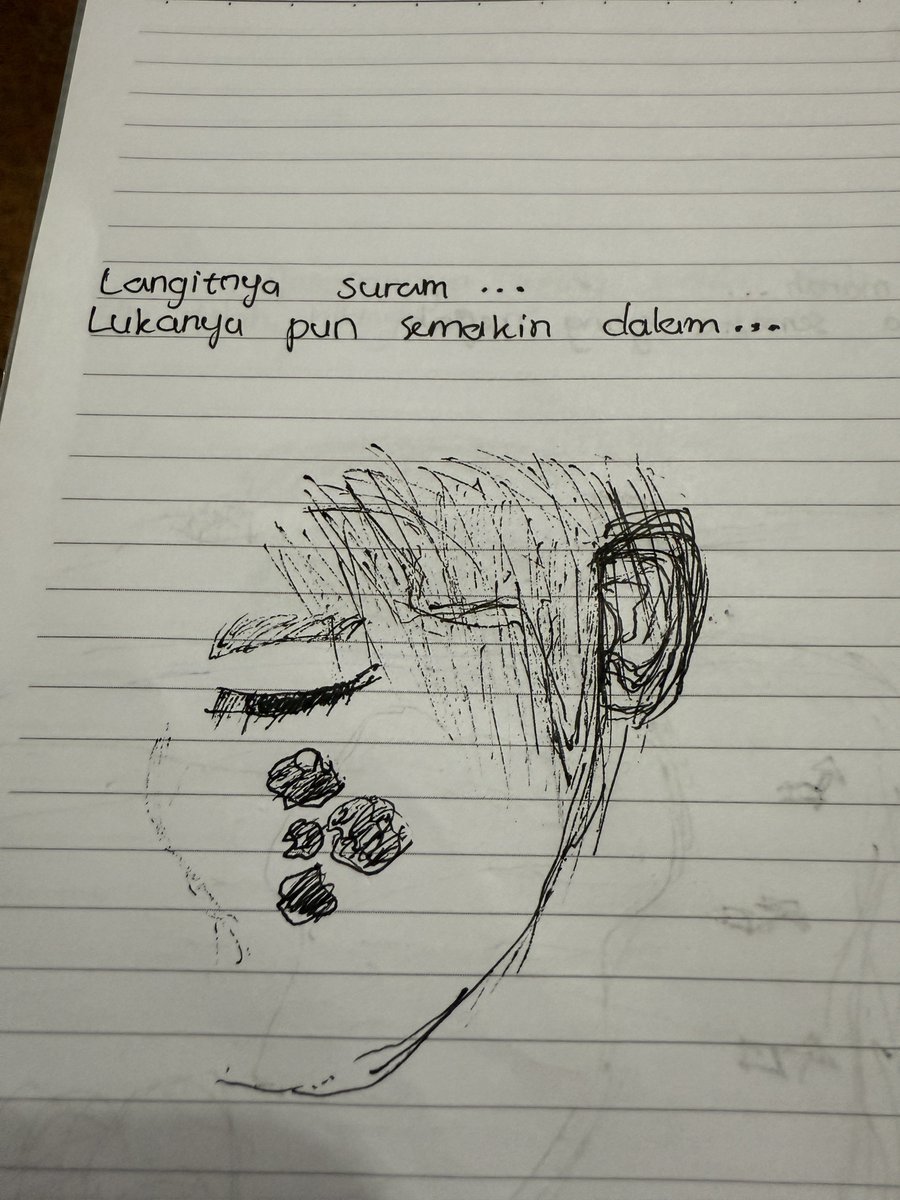 Langitnya suram ...
Lukanya pun semakin dalam...